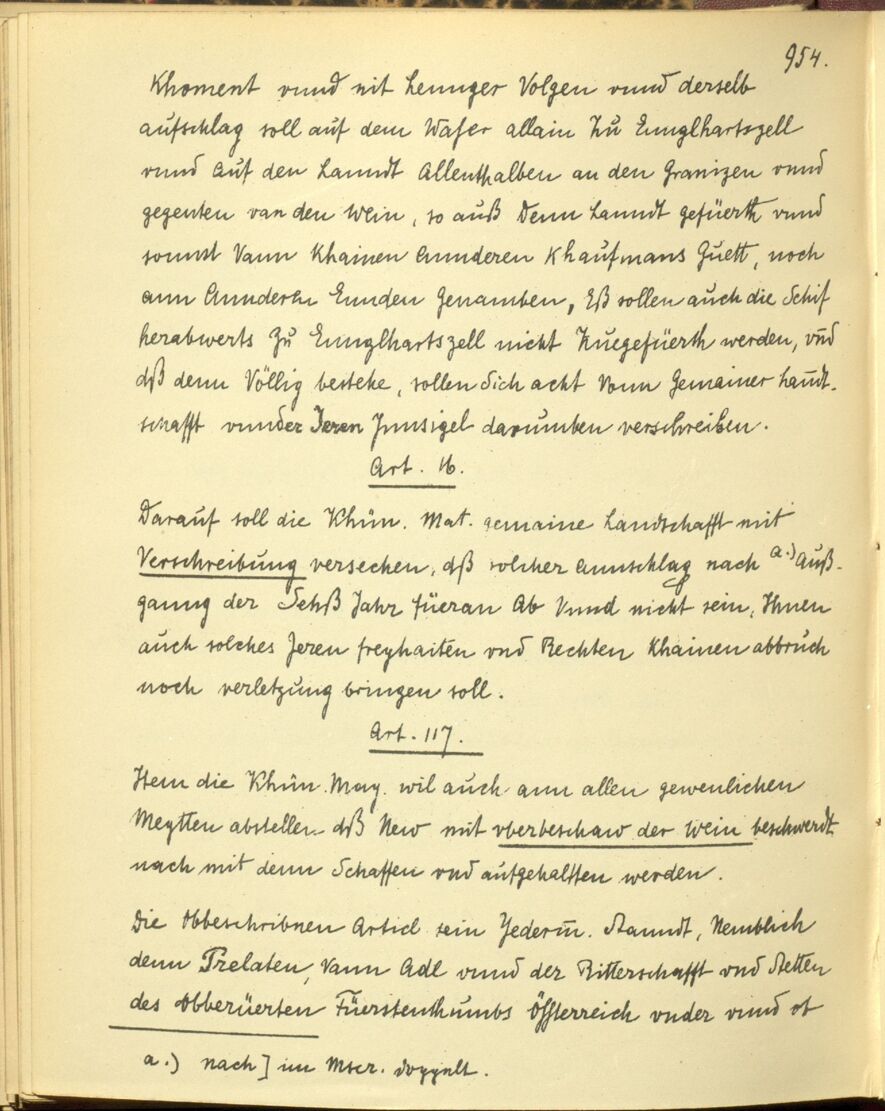 954.
Khoment vnnd nit lennger Volgen vnnd derselb
aufschlag soll auf dem Waser allain Zu Ennglhartszell
vnnd auf den Lanndt Allenthalben an den Granizen vnnd
gegenten van den Wein, so auß Denn Lanndt gefüerth vnnd
sonnst Vann Khainen Annderen Khaufmans Guett, noch
ann Annderen Ennden Genamben, Eß sollen auch die Schif
herabwerts Zu Ennglhartszell nicht Zuegefüerth werden, vnd
dß denn Völlig bestehe, sollen Sich acht Vonn Gemainer handt-
schafft vnnder Jeren Innsigel darumben verschreiben.
Art. 16.
Darauf soll die Khün. Mat. gemaine Landschafft mit
Verschreibung versechen, dß solcher annschlag nach a.) Auß-
ganng der Sehß Jahr füeran Ab Vnnd nicht sein, Ihnen
auch solches Jeren freyhaiten vnd Rechten Khainen abbruch
noch verletzung bringen soll.
Art. 117.
Item die Khün. May. wil auch ann allen gewenlichen
Meytten abstellen dß New mit vberbeschaw der Wein beschwerdt
nach mit denn Schaffen vnd aufgehaltten werden.
Die Obbeschribnen Articl sein Jederm. Stanndt, Nemblich
denn Prelaten, Vann Adl vnnd der Ritterschafft vnd Stetten
des Obberüerten Füerstenthumbs Össterreich vnder vnnd ob
a.) nach] im Mscr. doppelt.